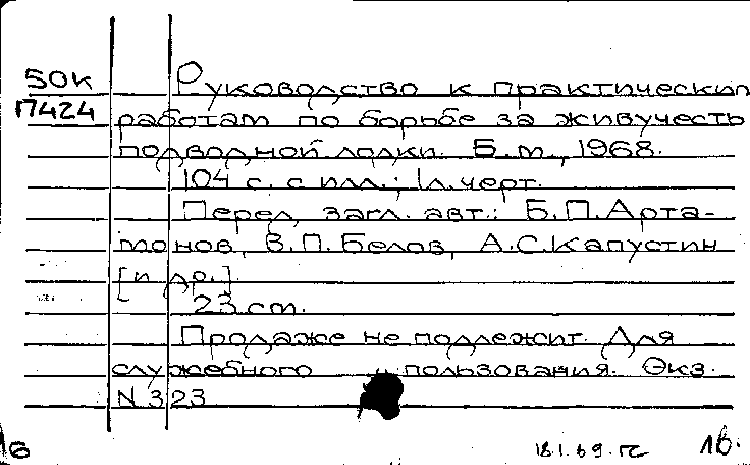 50К
П7424
Руководство к практическим
работам по борьбе за живучесть
подводной лодки. Б.м., 1968.
104 с. с илл.; 1л.черт.
Перед загл. авт.: Б.П.Арта-
монов, В.П.Белов, А.С.Капустин
[и др.]
23 cm.
Продаже не подлежит. Для
служебного пользования. Экз.
N 323
16
18.I.69.
1в.